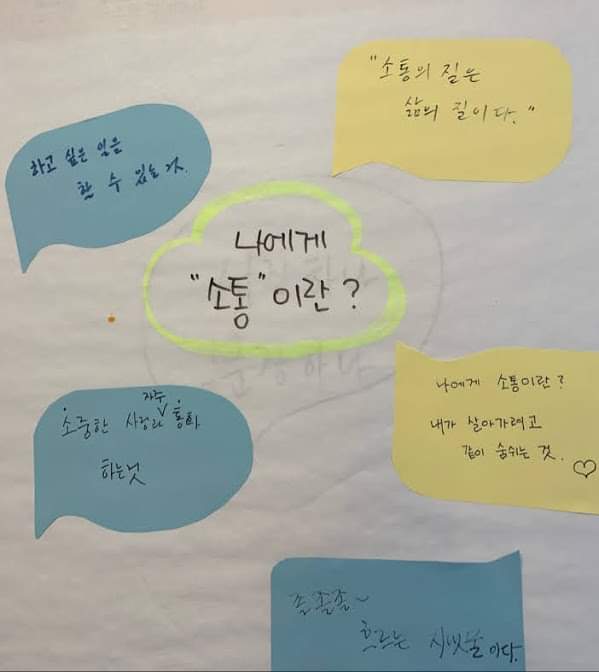 "소통의 질은
삶의 질이다."
하고 싶은 일을
할 수 있는 것.
나에게
"소통"이란?
나에게 소통이란?
내가 살아가려고
같이 숨쉬는 것. ♡
소중한 사람과 자주 통화
하는것
졸졸졸~
흐르는 시냇물이다.